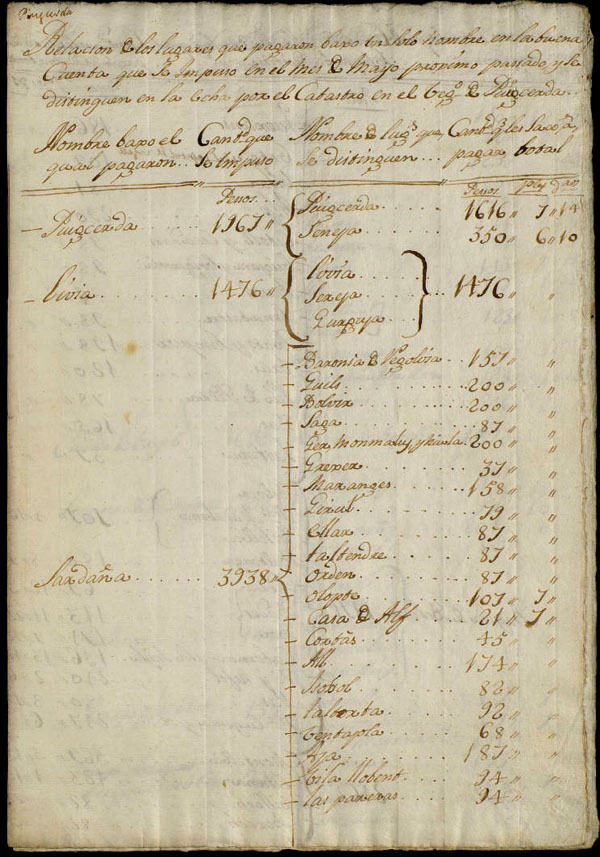 Relacion de los lugares que pagaron baxo un solo nombre en la buena
Cuenta que se Impuso en el mes de Mayo proximo passado, y se
distinguen en la echa por el Catastro en el Veg.º de Puigcerda..
Nombre baxo el qual pagaron.. Cant.d que se Impuso Nombre de lug.s que se distinguen.... Cant.d q.e les
pagar total
Pesos.. Pesos
Puigcerda....... 1967 Puigcerda..... 1616 7 14
Seneja..... 350 6 10
Livia......... 1476 Livia..... 1476
Sereja.....
Gurguja
Baronia de 157
Guils....... 200
Bolvir...... 200
Saga....... 87
Ger Monmaluy, y huila. 200
Grexer...... 37
Maranges.... 158
Girul...... 79
Ellar...... 87
taltendre... 87
Sardaña...... 3938 Orden...... 87
Olopte..... 107 7
Casa de Alf..... 21 7
Corbás..... 45
All....... 174
Isobol..... 82
talborta.... 92
Ventajola.... 68
Aja...... 187
Vila llobent.. 94
las pareras.... 94